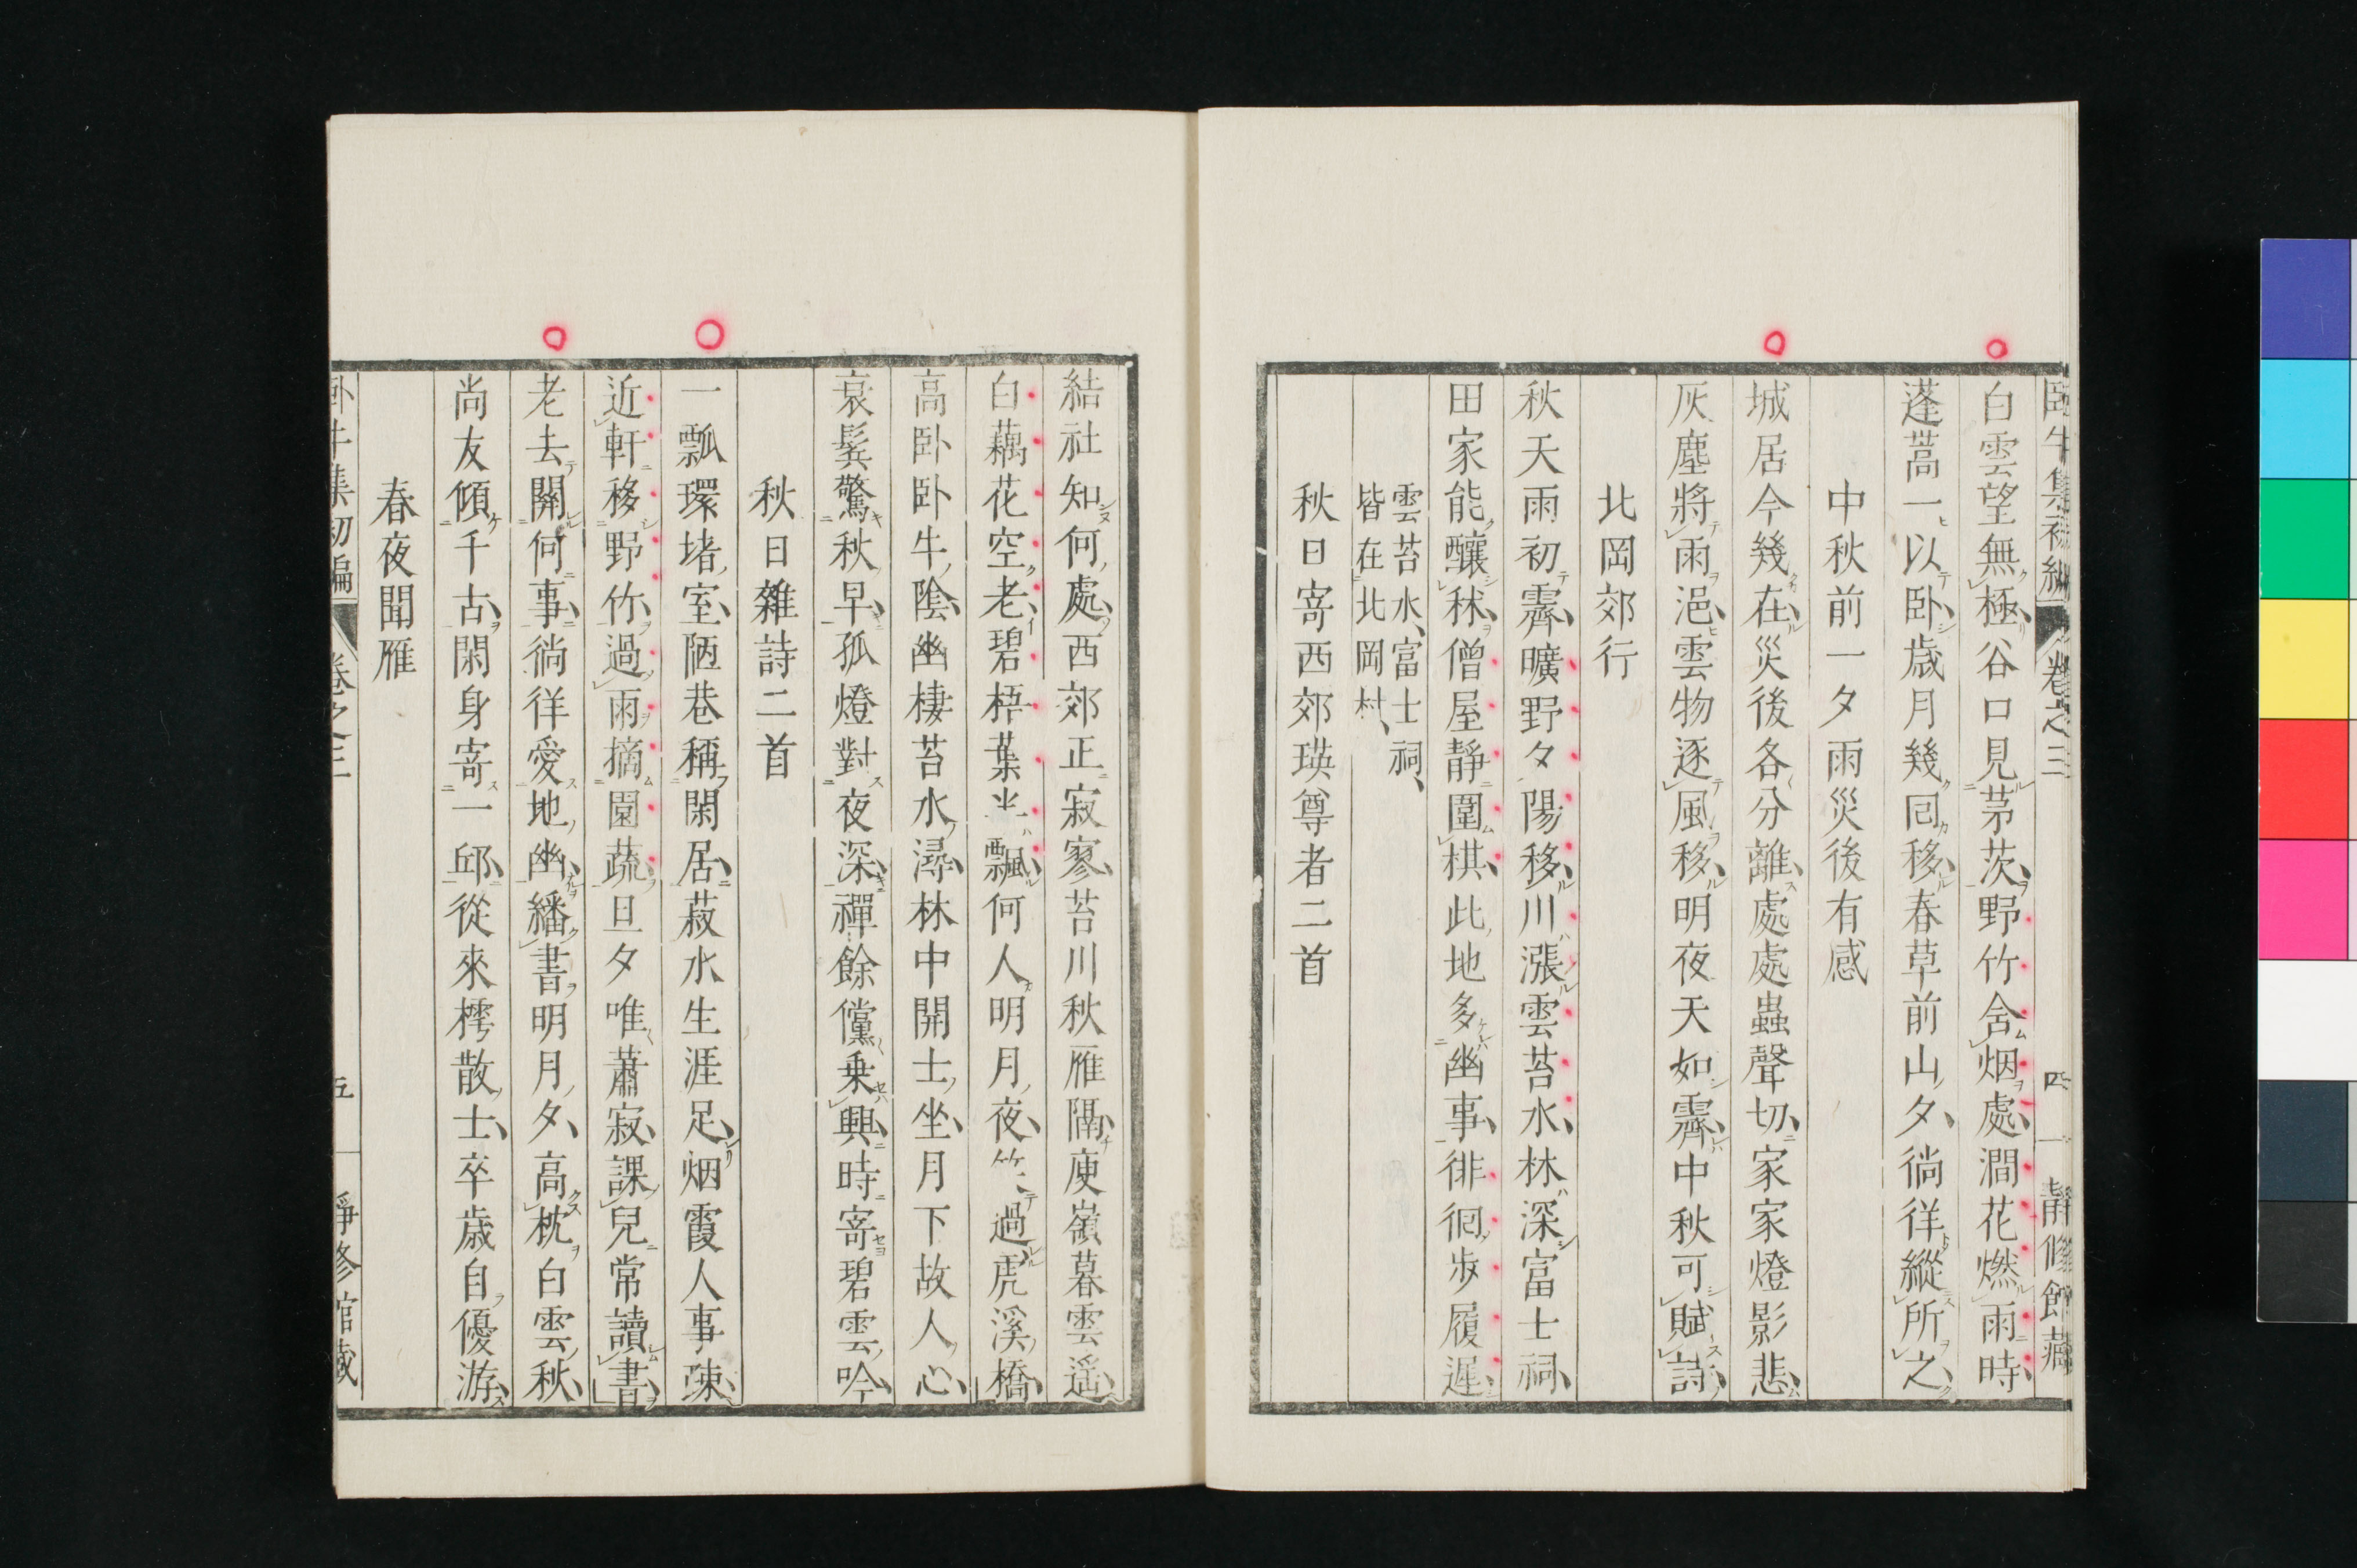 臥牛集初編 卷之三 四 靜修館藏
白雲望無極谷口見茅茨野竹含烟處澗花燃雨時
蓬蒿一以卧歲月幾回移春草前山夕徜徉縱所之
中秋前一夕雨災後有感
城居今幾在災後各分離處處蟲聲切家家燈影悲
灰塵將雨浥雲物逐風移明夜天如霽中秋可賦詩
北岡郊行
秋天雨初霽曠野夕陽移川漲雲苔水林深富士祠
田家能釀秫僧屋靜圍棋此地多幽事徘徊步履遲
雲苔水、富士祠、
皆在北岡村、
秋日寄西郊瑛尊者二首
結社知何處西郊正寂寥苔川秋雁隔庾嶺暮雲遥
白藕花空老碧梧葉半飄何人明月夜笑過虎溪橋
高卧卧牛陰幽棲苔水潯林中開士坐月下故人心
衰鬓驚秋早孤燈對夜深禪餘儻乗興時寄碧雲吟
秋日雜詩二首
一瓢環堵室陋巷稱閑居菽水生涯足烟霞人事疎
近軒移野竹過雨摘園蔬旦夕唯蕭寂課兒常讀書
老去關何事徜徉愛地幽繙書明月夕高枕白雲秋
尚友傾千古閑身寄一邱從來樗散士卒歲自優游
春夜聞雁
卧牛集初編 卷之三 五 靜修館藏